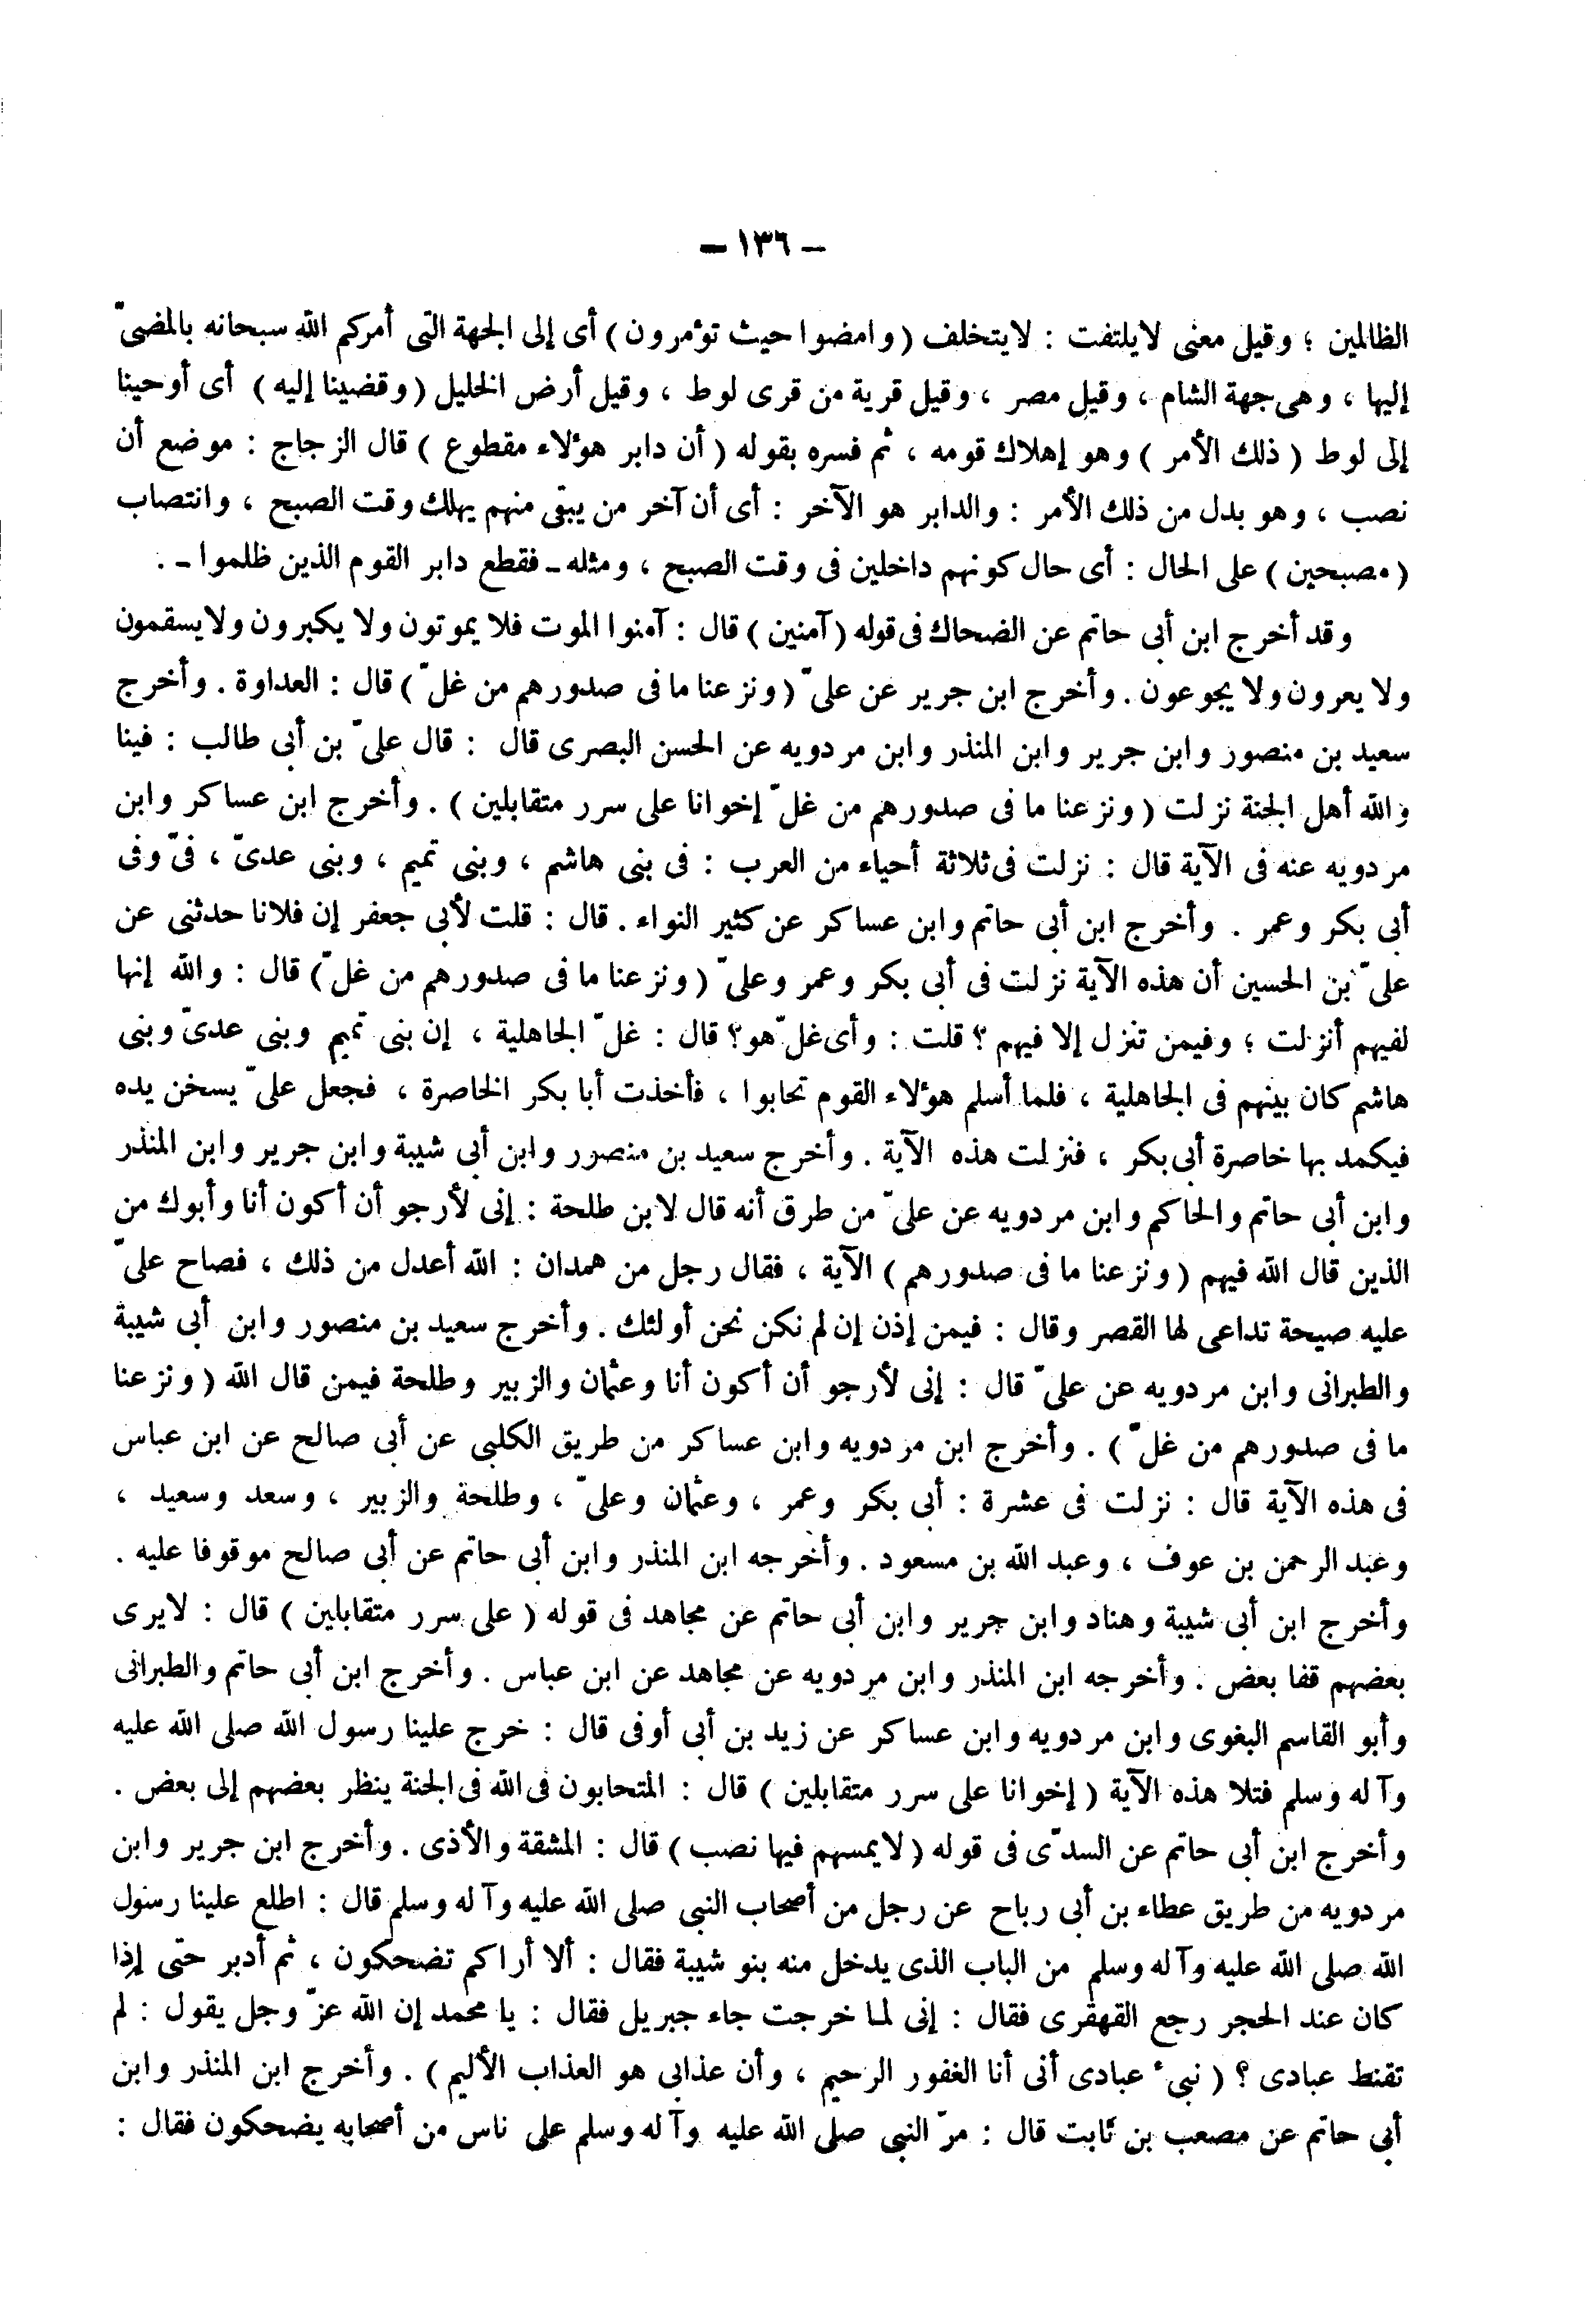 – ١٣٦ –
الظالمين ؛ وقيل معنى لايلتفت : لايتخلف ( وامضوا حيث تؤمرون ) أى إلى الجهة التى أمركم الله سبحانه بالمضىّ
إليها ، وهى جهة الشام ، وقيل مصر ، وقيل قرية من قرى لوط ، وقيل أرض الخليل ( وقضينا إليه ) أى أوحينا
إلى لوط ( ذلك الأمر ) وهو إهلاك قومه ، ثم فسره بقوله ( أن دابر هؤلاء مقطوع ) قال الزجاج : موضع أن
نصب ، وهو بدل من ذلك الأمر : والدابر هو الآخر : أى أن آخر من يبقى منهم يهلك وقت الصبح ، وانتصاب
( مصبحين ) على الحال : أى حال كونهم داخلين فى وقت الصبح ، ومثله ـ فقطع دابر القوم الذين ظلموا ـ .
وقد أخرج ابن أبى حاتم عن الضحاك فى قوله ( آمنين ) قال : آمنوا الموت فلا يموتون ولا يكبرون ولايسقمون
ولا يعرون ولا يجوعون . وأخرج ابن جرير عن علىّ ( ونزعنا ما فى صدورهم من غلّ ) قال : العداوة . وأخرج
سعيد بن منصور وابن جرير وابن المنذر وابن مردويه عن الحسن البصرى قال : قال علىّ بن أبى طالب : فينا
والله أهل الجنة نزلت ( ونزعنا ما فى صدورهم من غلّ إخوانا على سرر متقابلين ) . وأخرج ابن عساكر وابن
مردويه عنه فى الآية قال : نزلت فى ثلاثة أحياء من العرب : فى بنى هاشم ، وبنى تميم ، وبنى عدىّ ، فىّ وفى
أبى بكر وعمر . وأخرج ابن أبى حاتم وابن عساكر عن كثير النواء . قال : قلت لأبى جعفر إن فلانا حدثنى عن
علىّ بن الحسين أن هذه الآية نزلت فى أبى بكر وعمر وعلىّ ( ونزعنا ما فى صدورهم من غلّ ) قال : والله إنها
لفيهم أنزلت ؛ وفيمن تنزل إلا فيهم ؟ قلت : وأى غلّ هو؟ قال : غلّ الجاهلية ، إن بنى تميم وبنى عدىّ وبنى
هاشم كان بينهم فى الجاهلية ، فلما أسلم هؤلاء القوم تحابوا ، فأخذت أبا بكر الخاصرة ، فجعل علىّ يسخن يده
فيكمد بها خاصرة أبى بكر ، فنزلت هذه الآية . وأخرج سعيد بن منصور وابن أبى شيبة وابن جرير وابن المنذر
وابن أبى حاتم والحاكم وابن مردويه عن علىّ من طرق أنه قال لابن طلحة : إنى لأرجو أن أكون أنا وأبوك من
الذين قال الله فيهم ( ونزعنا ما فى صدورهم ) الآية ، فقال رجل من همدان : الله أعدل من ذلك ، فصاح علىّ
عليه صيحة تداعى لها القصر وقال : فيمن إذن إن لم نكن نحن أولئك . وأخرج سعيد بن منصور وابن أبى شيبة
والطبرانى وابن مردويه عن علىّ قال : إنى لأرجو أن أكون أنا وعثمان والزبير وطلحة فيمن قال الله ( ونزعنا
ما فى صدورهم من غلّ ) . وأخرج ابن مردويه وابن عساكر من طريق الكلبى عن أبى صالح عن ابن عباس
فى هذه الآية قال : نزلت فى عشرة : أبى بكر وعمر ، وعثمان وعلىّ ، وطلحة والزبير ، وسعد وسعيد ،
وعبد الرحمن بن عوف ، وعبد الله بن مسعود . وأخرجه ابن المنذر وابن أبى حاتم عن أبى صالح موقوفا عليه .
وأخرج ابن أبى شيبة وهناد وابن جرير وابن أبى حاتم عن مجاهد فى قوله ( على سرر متقابلين ) قال : لايرى
بعضهم قفا بعض . وأخرجه ابن المنذر وابن مردويه عن مجاهد عن ابن عباس . وأخرج ابن أبى حاتم والطبرانى
وأبو القاسم البغوى وابن مردويه وابن عساكر عن زيد بن أبى أوفى قال : خرج علينا رسول الله صلى الله عليه
وآله وسلم فتلا هذه الآية ( إخوانا على سرر متقابلين ) قال : المتحابون فى الله فى الجنة ينظر بعضهم إلى بعض .
وأخرج ابن أبى حاتم عن السدّى فى قوله ( لايمسهم فيها نصب ) قال : المشقة والأذى . وأخرج ابن جرير وابن
مردويه من طريق عطاء بن أبى رباح عن رجل من أصحاب النبى صلى الله عليه وآله وسلم قال : اطلع علينا رسول
الله صلى الله عليه وآله وسلم من الباب الذى يدخل منه بنو شيبة فقال : ألا أراكم تضحكون ، ثم أدبر حتى إذا
كان عند الحجر رجع القهقرى فقال : إنى لما خرجت جاء جبريل فقال : يا محمد إن الله عزّ وجل يقول : لم
تقنط عبادى ؟ ( نبىء عبادى أنى أنا الغفور الرحيم ، وأن عذابى هو العذاب الأليم ) . وأخرج ابن المنذر وابن
أبى حاتم عن مصعب بن ثابت قال : مرّ النبى صلى الله عليه وآله وسلم على ناس من أصحابه يضحكون فقال :